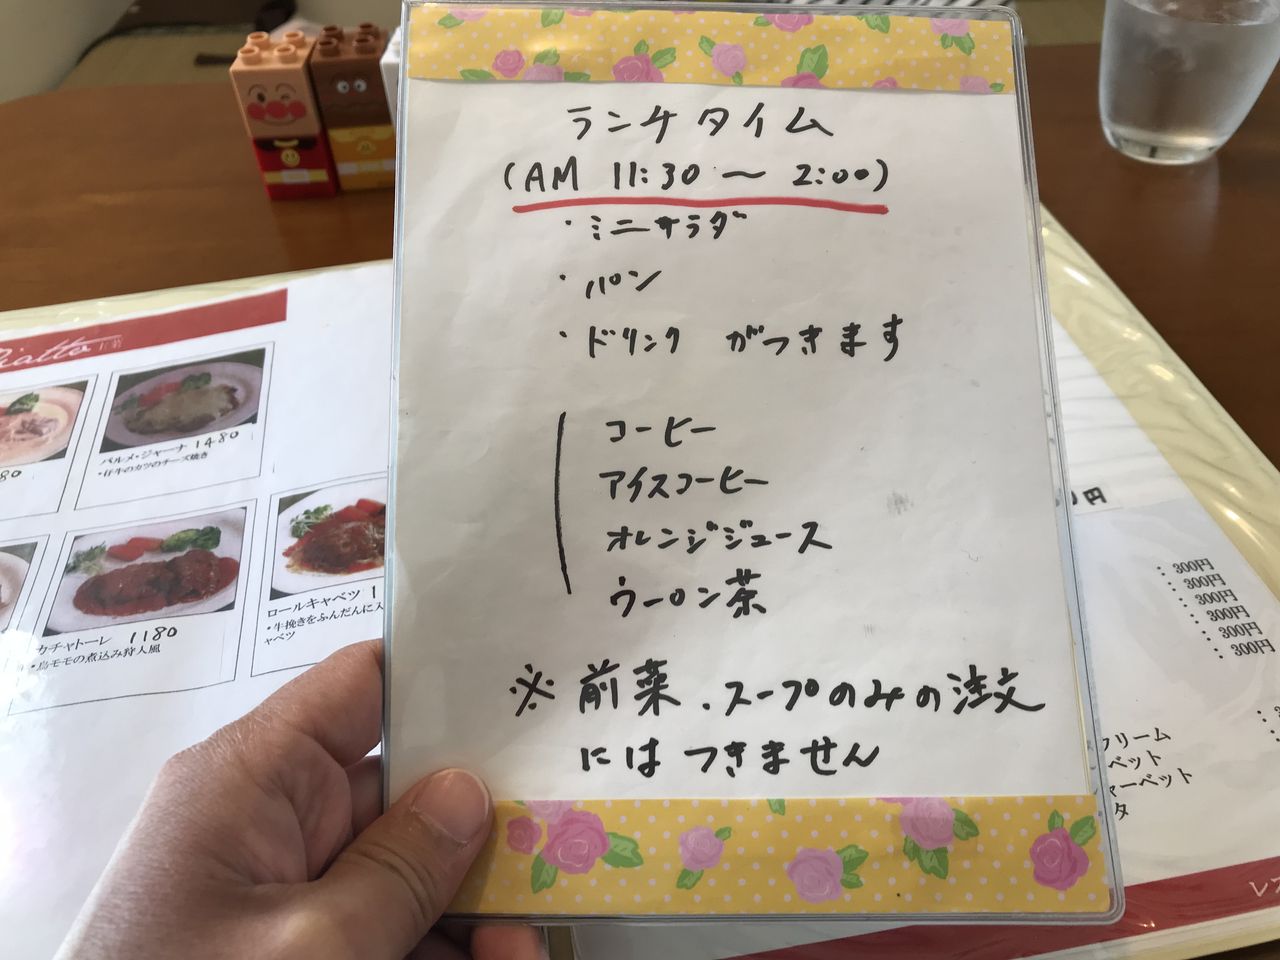 ランチタイム
(AM 11:30 ~ 2:00)
・ミニサラダ
・パン
・ドリンク がつきます
コーヒー
アイスコーヒー
オレンジジュース
ウーロン茶
※前菜.スープのみの注文
にはつきません
パルメ・ジャーナ 1480
・仔牛のカツのチーズ焼き
80
カチャトーレ 1180
・鳥モモの煮込み狩人風
ロールキャベツ 1
・牛挽きをふんだんに入
ャベツ
0円
:300円
:300円
:300円
:300円
:300円
:300円
クリーム
ベット
ャーベット
タ
レス